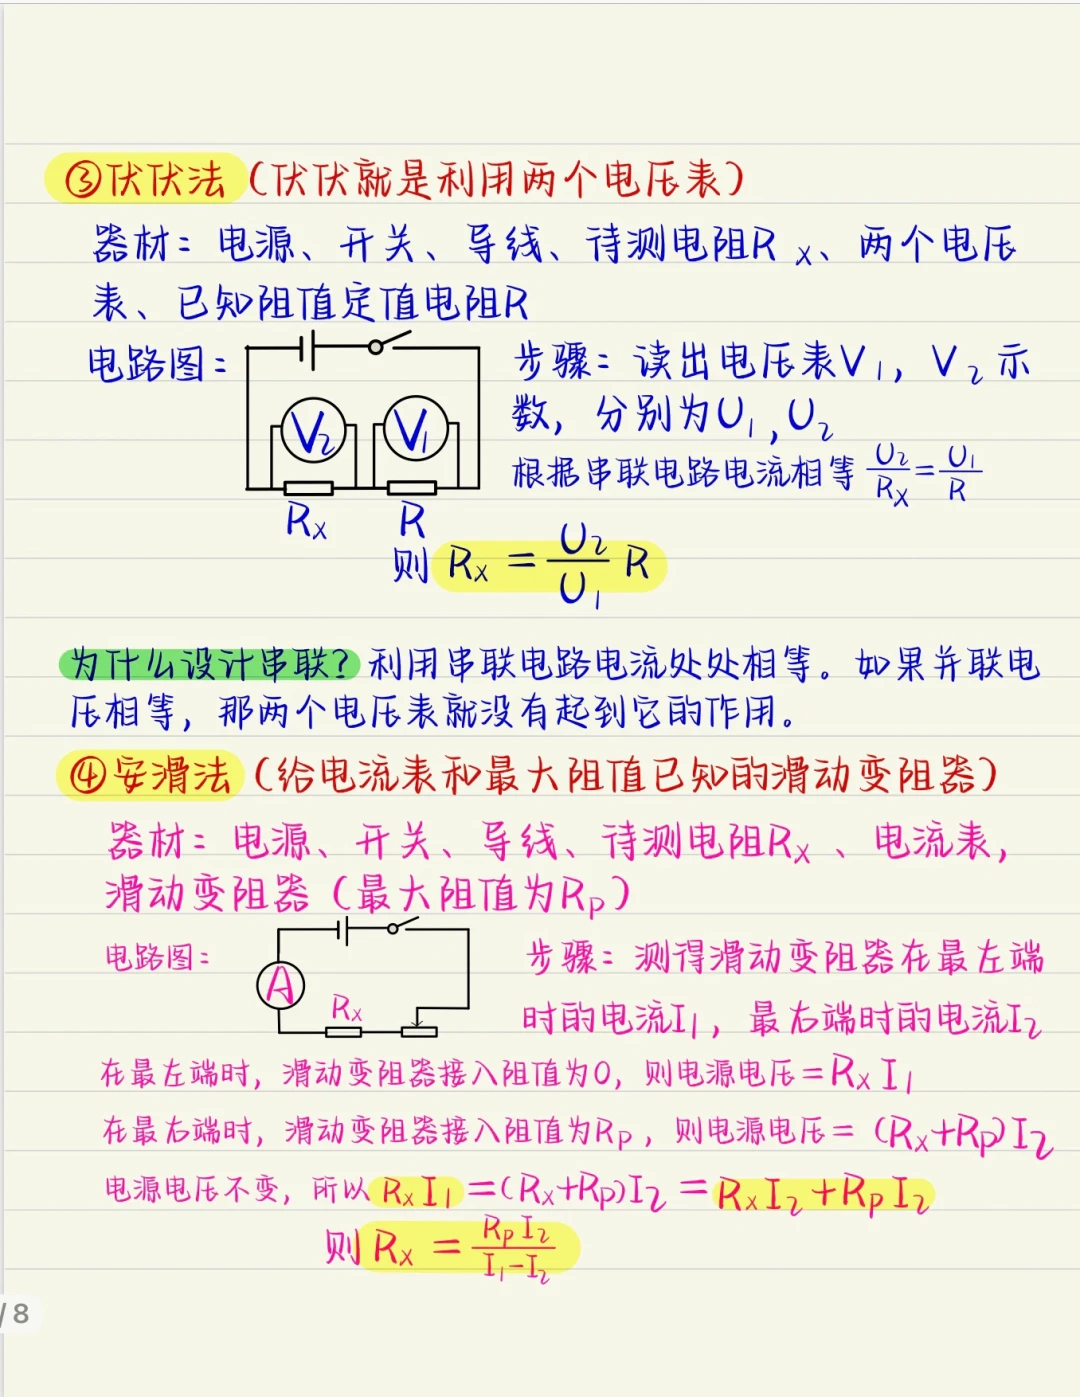 ③伏伏法（伏伏就是利用两个电压表）
器材：电源、开关、导线、待测电阻Rx、两个电压
表、已知阻值定值电阻R
电路图：
V₂ V₁
Rx R
步骤：读出电压表V₁，V₂示
数，分别为U₁,U₂
根据串联电路电流相等 U₂/Rx=U₁/R
则 Rx = U₂/U₁ R
为什么设计串联？利用串联电路电流处处相等。如果并联电
压相等，那两个电压表就没有起到它的作用。
④安滑法（给电流表和最大阻值已知的滑动变阻器）
器材：电源、开关、导线、待测电阻Rx、电流表，
滑动变阻器（最大阻值为Rp）
电路图：
A
Rx
步骤：测得滑动变阻器在最左端
时的电流I₁，最右端时的电流I₂
在最左端时，滑动变阻器接入阻值为0，则电源电压=RxI₁
在最右端时，滑动变阻器接入阻值为Rp，则电源电压=(Rx+Rp)I₂
电源电压不变，所以RxI₁=(Rx+Rp)I₂=RxI₂+RpI₂
则 Rx = RpI₂/I₁-I₂
/8